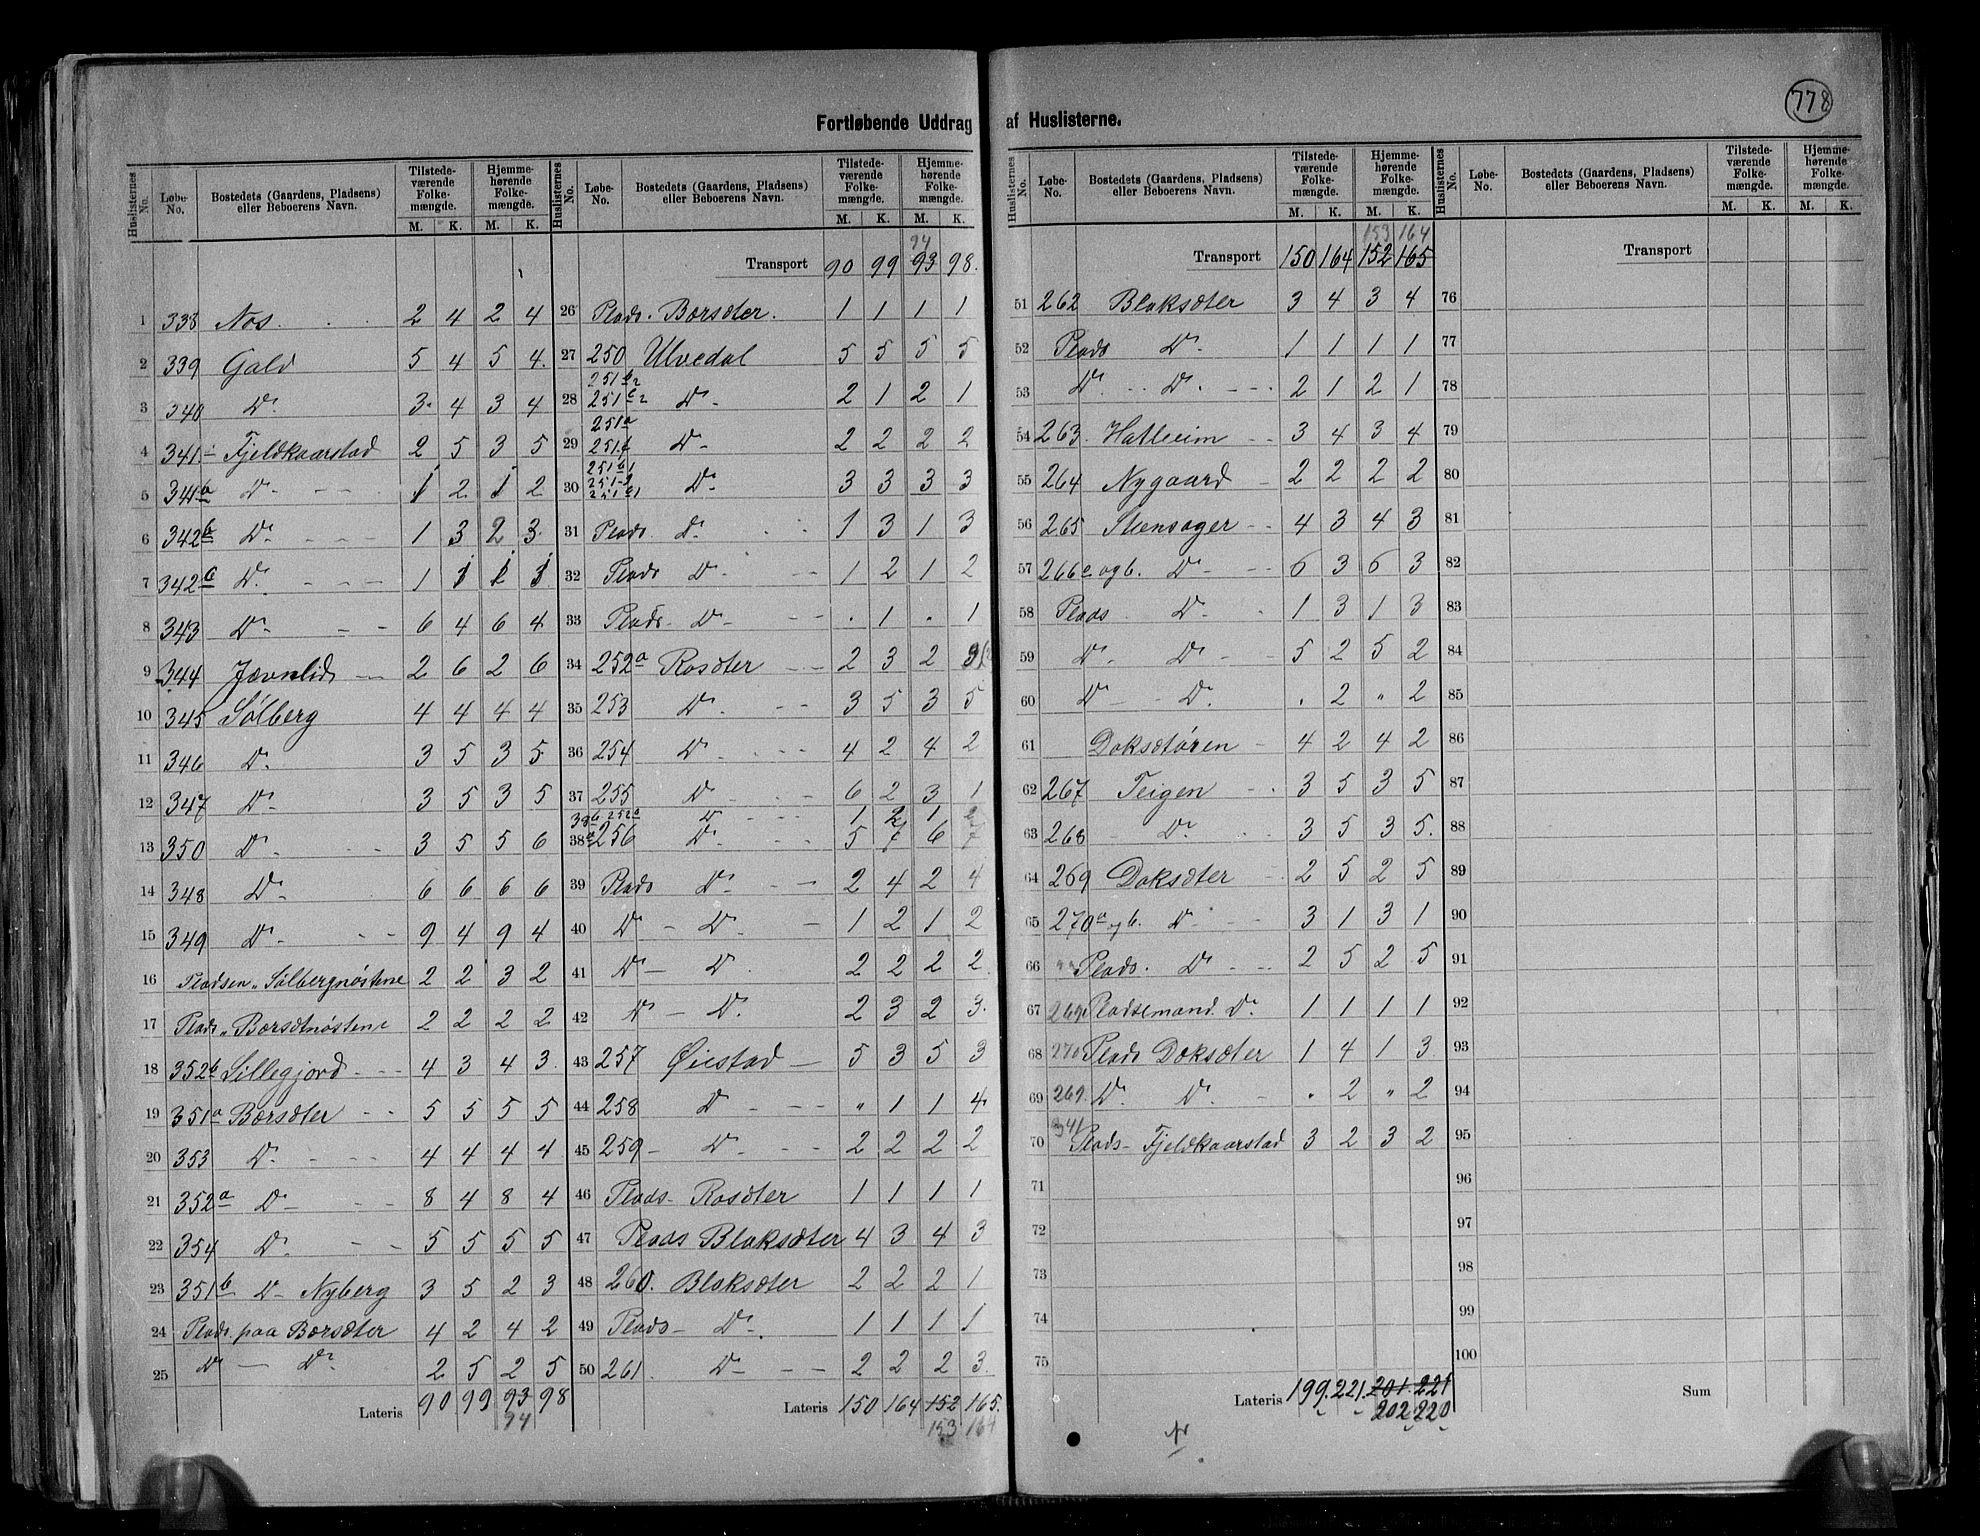 778
Fortløbende Uddrag af Huslisterne.
Huslisternes No. Løbe-No. Bostedets (Gaardens, Pladsens) eller Beboerens Navn. Tilstedeværende Folkemængde. M. K. Hjemmehørende Folkemængde. M. K.
1 338 Nos. 2 4 2 4
2 339 Gald 5 4 5 4.
3 340 Do 3 4 3 4
4 341 Fjeldkaarstad 2 5 3 5
5 341a Do 1 2 1 2
6 342b Do 1 3 2 3
7 342c Do 1 1 1 1
8 343 Do 6 4 6 4
9 344 Jævnlid 2 6 2 6
10 345 Sølberg 4 4 4 4
11 346 Do 3 5 3 5
12 347 Do 3 5 3 5
13 350 Do 3 5 5 6
14 348 Do 6 6 6 6
15 349 Do 9 4 9 4
16 Pladsen „Sølbergnøstene 2 2 3 2
17 Plads „Børsætnøstene 2 2 2 2
18 352b Lillegjord 4 3 4 3
19 351a Børsæter 5 5 5 5
20 353 Do 4 4 4 4
21 352a Do 8 4 8 4
22 354 Do 5 5 5 5
23 351b Do Nyberg 3 5 2 3
24 Plads paa Børsæter 4 2 4 2
25 Do — Do 2 5 2 5
Lateris 90 99 93 98
94
Huslisternes No. Løbe-No. Bostedets (Gaardens, Pladsens) eller Beboerens Navn. Tilstedeværende Folkemængde. M. K. Hjemmehørende Folkemængde. M. K.
94
Transport 90 99 93 98.
26 Plads. Børsæter. 1 1 1 1
27 250 Ulvedal 5 5 5 5
28 251b2 251c2 Do 2 1 2 1
29 251a 251f Do 2 2 2 2
30 251b1 251c1 Do 3 3 3 3
31 Plads Do 1 3 1 3
32 Plads Do 1 2 1 2
33 Plads Do . 1 . 1
34 252a Rosæter 2 3 2
35 253 Do 3 5 3 5
36 254 Do 4 2 4 2
37 255 Do 6 2 3 1
38b 252a Do 1 2 1 2
38a 256 Do 5 7 6 7
39 Plads Do 2 4 2 4
40 Do — Do 1 2 1 2
41 Do — Do 2 2 2 2
42 Do — Do 2 3 2 3.
43 257 Øiestad 5 3 5 3
44 258 Do „ 1 1 4
45 259 Do 2 2 2 2
46 Plads Rosæter 1 1 1 1
47 Plads Blaksæter 4 3 4 3
48 260. Blaksæter 2 2 2 1
49 Plads Do 1 1 1 1
50 261 Do 2 2 2 3.
Lateris 150 164 152 165.
153 164
Huslisternes No. Løbe-No. Bostedets (Gaardens, Pladsens) eller Beboerens Navn. Tilstedeværende Folkemængde. M. K. Hjemmehørende Folkemængde. M. K.
153 164
Transport 150 164 152 165
51 262 Blaksæter 3 4 3 4
52 Plads Do 1 1 1 1
53 Do Do 2 1 2 1
54 263. Hatleim 3 4 3 4
55 264 Nygaard 2 2 2 2
56 265 Steensager 4 3 4 3
57 266c og b. Do 6 3 6 3
58 Plads Do 1 3 1 3
59 Do Do 5 2 5 2
60 Do Do . 2 „ 2
61 Doksætøren 4 2 4 2
62 267 Teigen 3 5 3 5
63 268 Do 3 5 3 5.
64 269 Doksæter 2 5 2 5
65 270a og b. Do 3 1 3 1
66 Plads. Do 2 5 2 5
67 269 Pladsemand. Do 1 1 1 1
68 270 Plads Doksæter 1 4 1 3
69 269. Do Do . 2 „ 2
70 341 Plads Fjeldkaarstad 3 2 3 2
71
72
73
74
75
Lateris 199. 221. 201. 221
202 220
Huslisternes No. Løbe-No. Bostedets (Gaardens, Pladsens) eller Beboerens Navn. Tilstedeværende Folkemængde. M. K. Hjemmehørende Folkemængde. M. K.
Transport
76
77
78
79
80
81
82
83
84
85
86
87
88
89
90
91
92
93
94
95
96
97
98
99
100
Sum